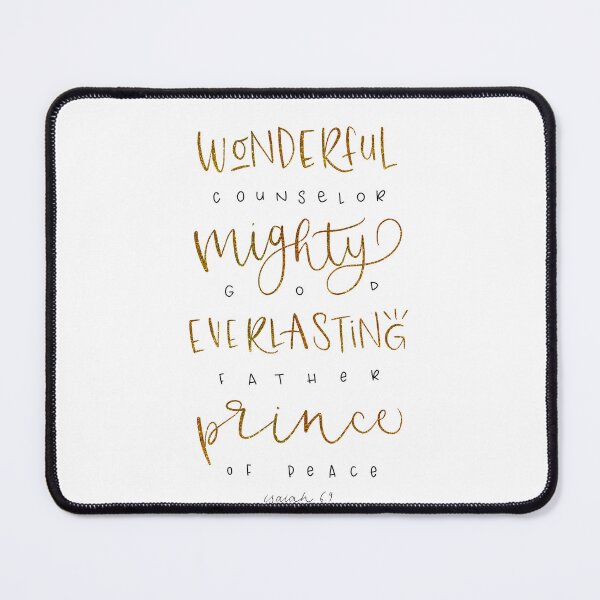 WONDERFUL
COUNSELOR
mighty
GOD
EVERLASTiNG
FATHER
prince
OF PEACE
isaiah 6:9